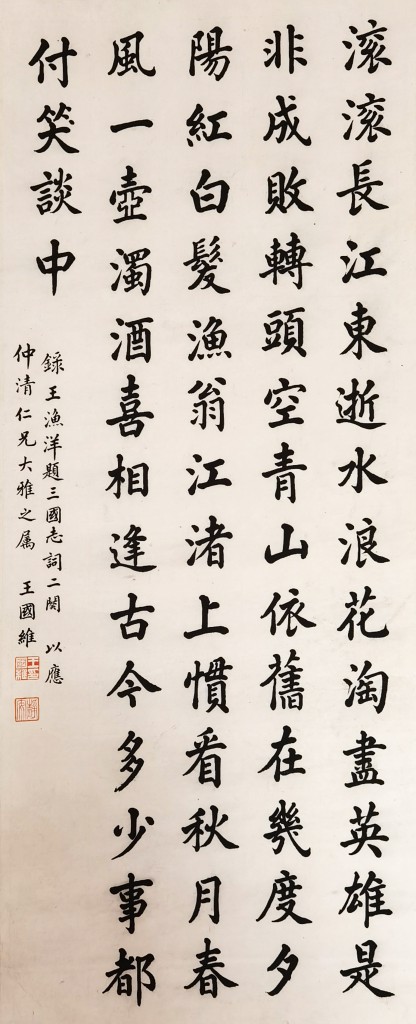 滚滚長江東逝水浪花淘盡英雄是
非成敗轉頭空青山依舊在幾度夕
陽紅白髮漁翁江渚上慣看秋月春
風一壺濁酒喜相逢古今多少事都
付笑談中
錄王漁洋題三國志詞二闋 以應
仲清仁兄大雅之属 王國維